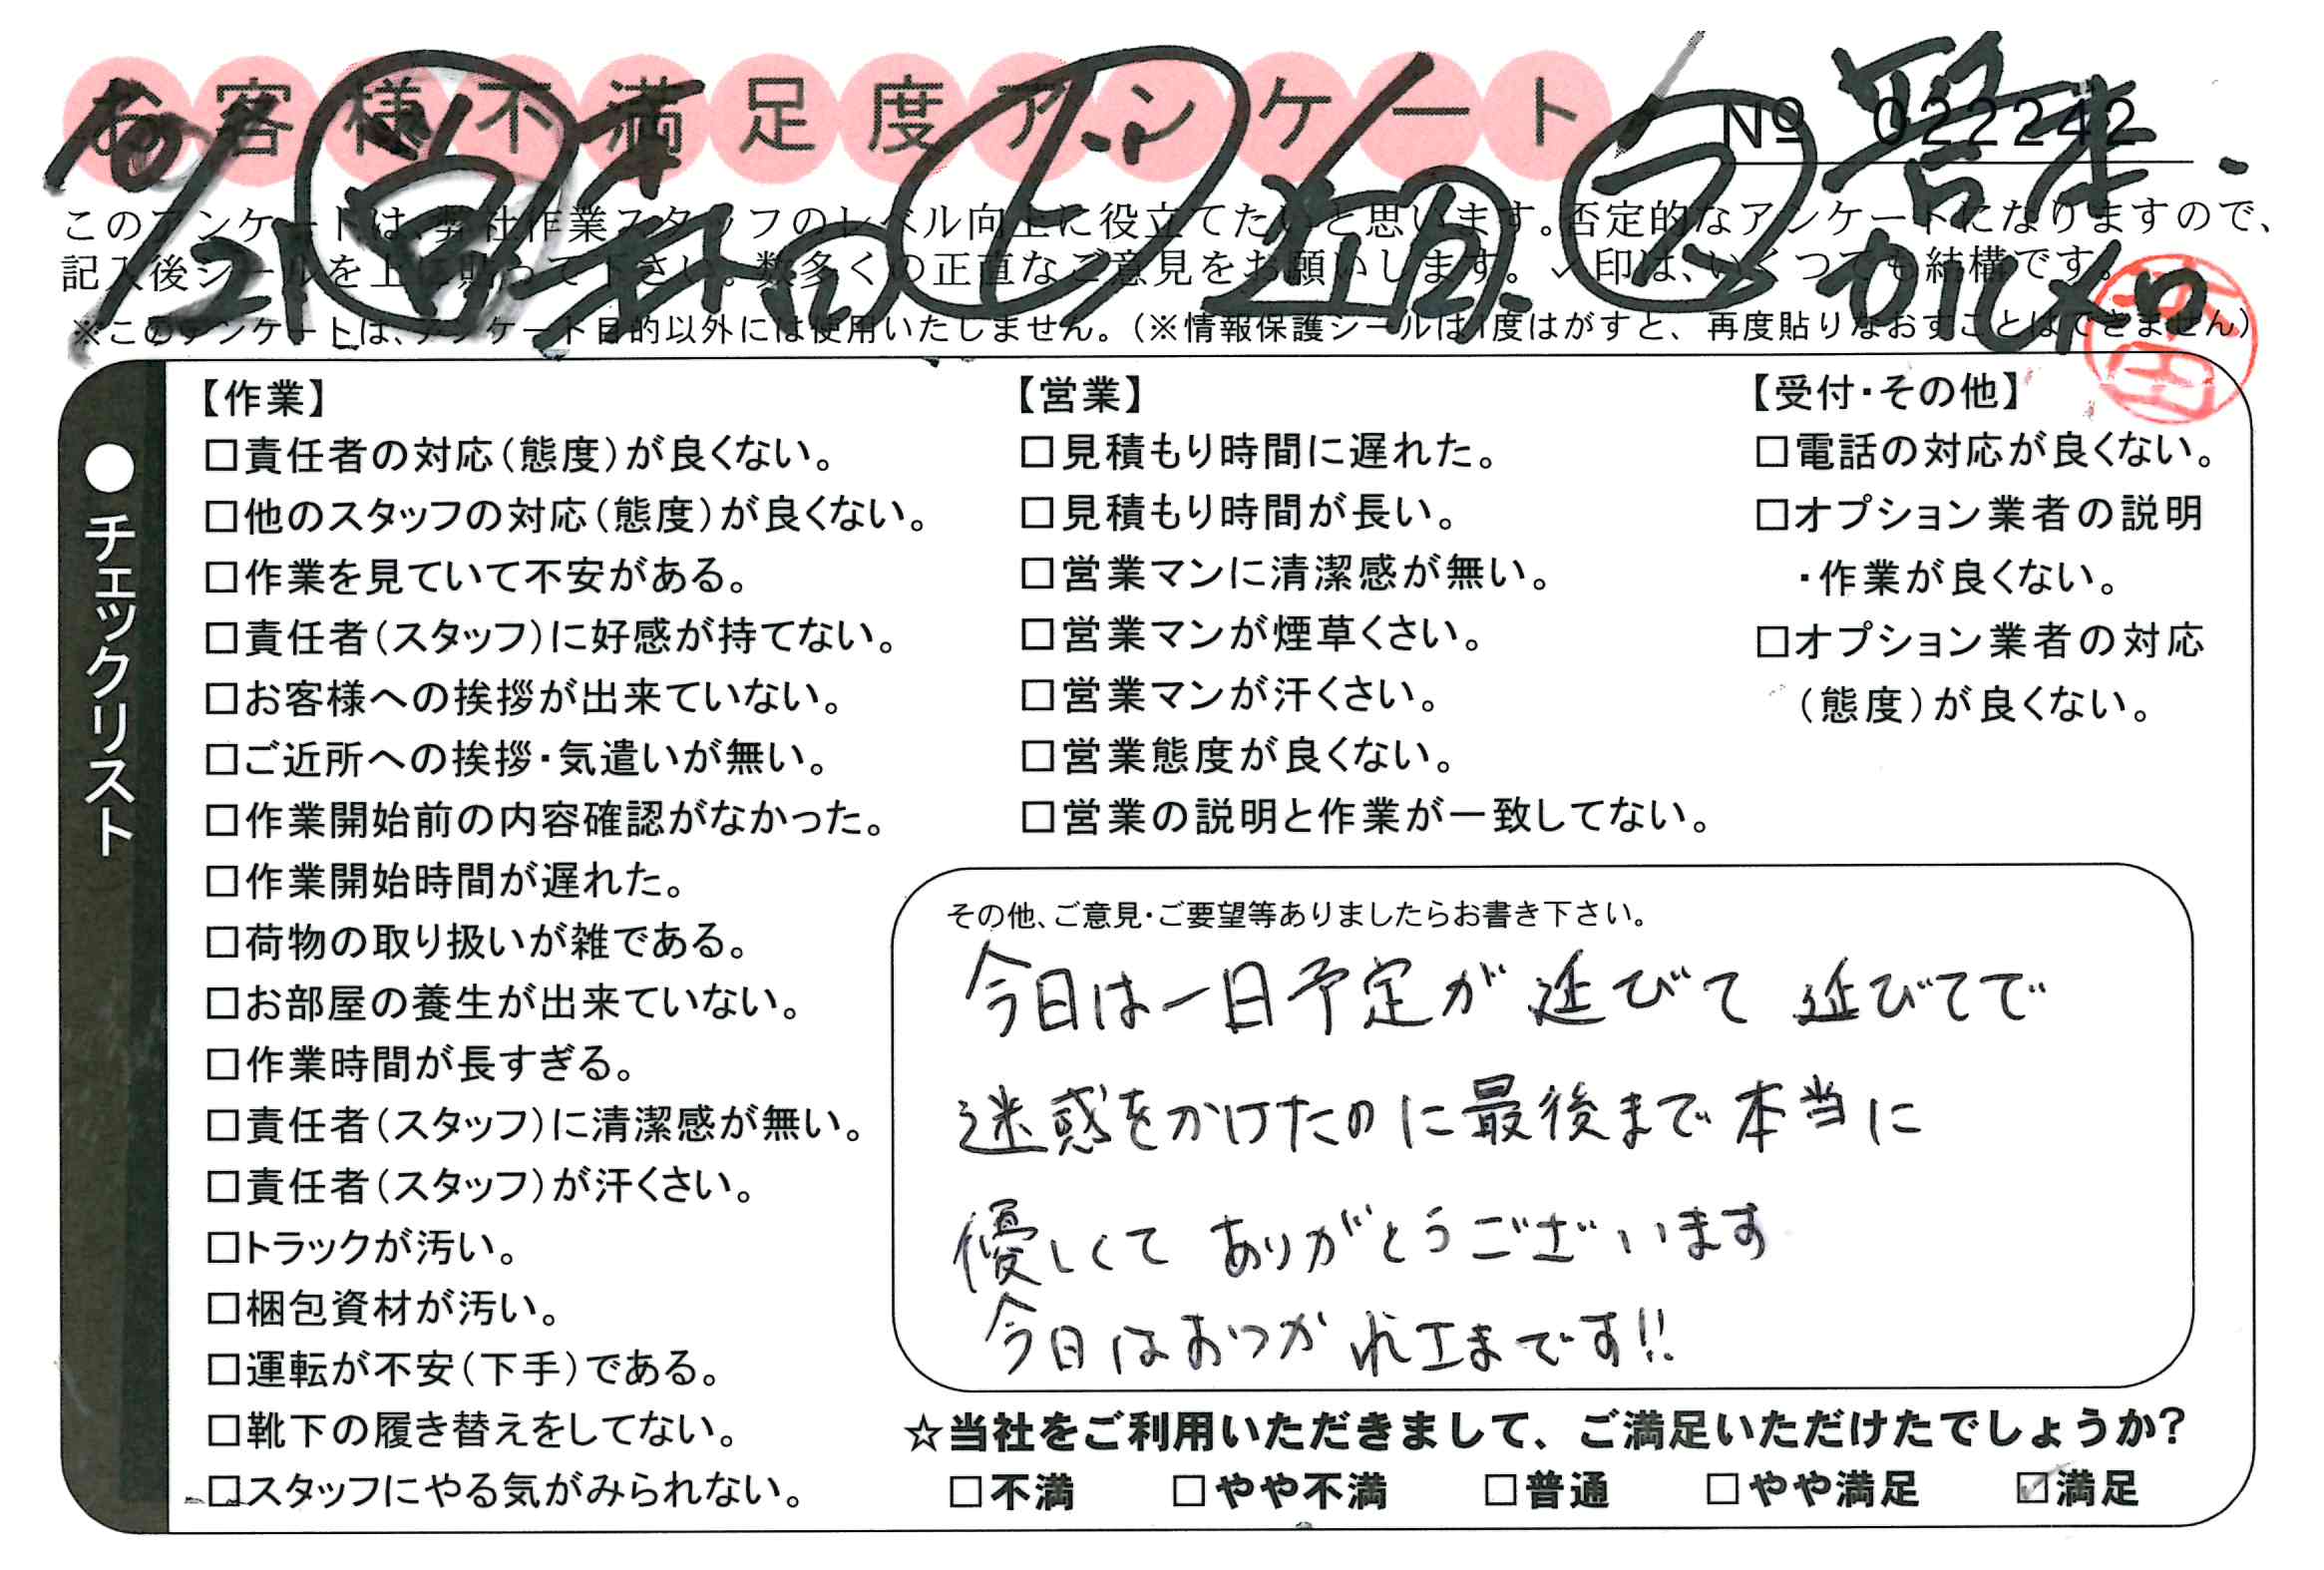 お客様不満足度アンケート
№ 022242
10/21
このアンケートは、弊社作業スタッフのレベル向上に役立てたいと思います。否定的なアンケートになりますので、
記入後シールを上に貼って下さい。数多くの正直なご意見をお願いします。✓印は、いくつでも結構です。
※このアンケートは、アンケート目的以外には使用いたしません。(※情報保護シールは1度はがすと、再度貼りなおすことはできません)
●チェックリスト
【作業】
□責任者の対応(態度)が良くない。
□他のスタッフの対応(態度)が良くない。
□作業を見ていて不安がある。
□責任者(スタッフ)に好感が持てない。
□お客様への挨拶が出来ていない。
□ご近所への挨拶・気遣いが無い。
□作業開始前の内容確認がなかった。
□作業開始時間が遅れた。
□荷物の取り扱いが雑である。
□お部屋の養生が出来ていない。
□作業時間が長すぎる。
□責任者(スタッフ)に清潔感が無い。
□責任者(スタッフ)が汗くさい。
□トラックが汚い。
□梱包資材が汚い。
□運転が不安(下手)である。
□靴下の履き替えをしてない。
□スタッフにやる気がみられない。
【営業】
□見積もり時間に遅れた。
□見積もり時間が長い。
□営業マンに清潔感が無い。
□営業マンが煙草くさい。
□営業マンが汗くさい。
□営業態度が良くない。
□営業の説明と作業が一致してない。
【受付・その他】
□電話の対応が良くない。
□オプション業者の説明
・作業が良くない。
□オプション業者の対応
(態度)が良くない。
その他、ご意見・ご要望等ありましたらお書き下さい。
今日は一日予定が延びて延びてで
迷惑をかけたのに最後まで本当に
優しくて ありがとうございます
今日はおつかれエまです!!
☆当社をご利用いただきまして、ご満足いただけたでしょうか?
□不満 □やや不満 □普通 □やや満足 ☑満足